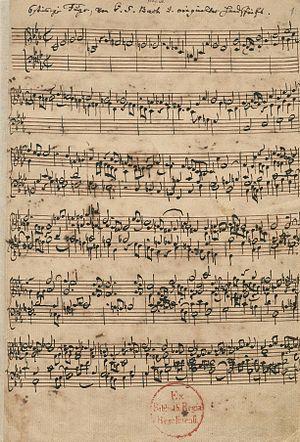 6stimige Fuge, von J. S. Bach u. originaler Handschrift.
Ex
Biblioth. Regia
Berolinensi.